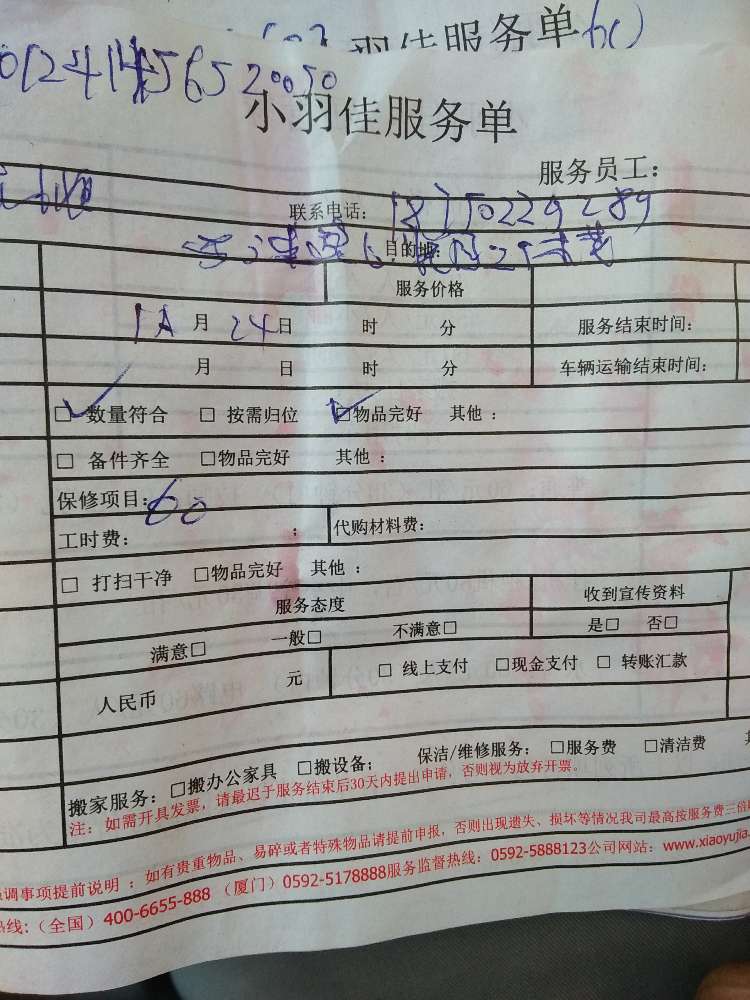 羽佳服务单
小羽佳服务单
服务员工：
联系电话：
目的地：
服务价格
月 24日 时 分 服务结束时间：
月 日 时 分 车辆运输结束时间：
☑ 数量符合 □ 按需归位 ☑物品完好 其他：
□ 备件齐全 □物品完好 其他：
保修项目：60
工时费： ； 代购材料费：
□ 打扫干净 □物品完好 其他：
服务态度 收到宣传资料
满意□ 一般□ 不满意□ 是□ 否□
人民币 元 □ 线上支付 □现金支付 □ 转账汇款
搬家服务：□搬办公家具 □搬设备； 保洁/维修服务：□服务费 □清洁费
注：如需开具发票，请最迟于服务结束后30天内提出申请，否则视为放弃开票。
调事项提前说明：如有贵重物品、易碎或者特殊物品请提前申报，否则出现遗失、损坏等情况我司最高按服务费三倍
热线：（全国）400-6655-888 （厦门）0592-5178888服务监督热线：0592-5888123公司网站：www.xiaoyujia.